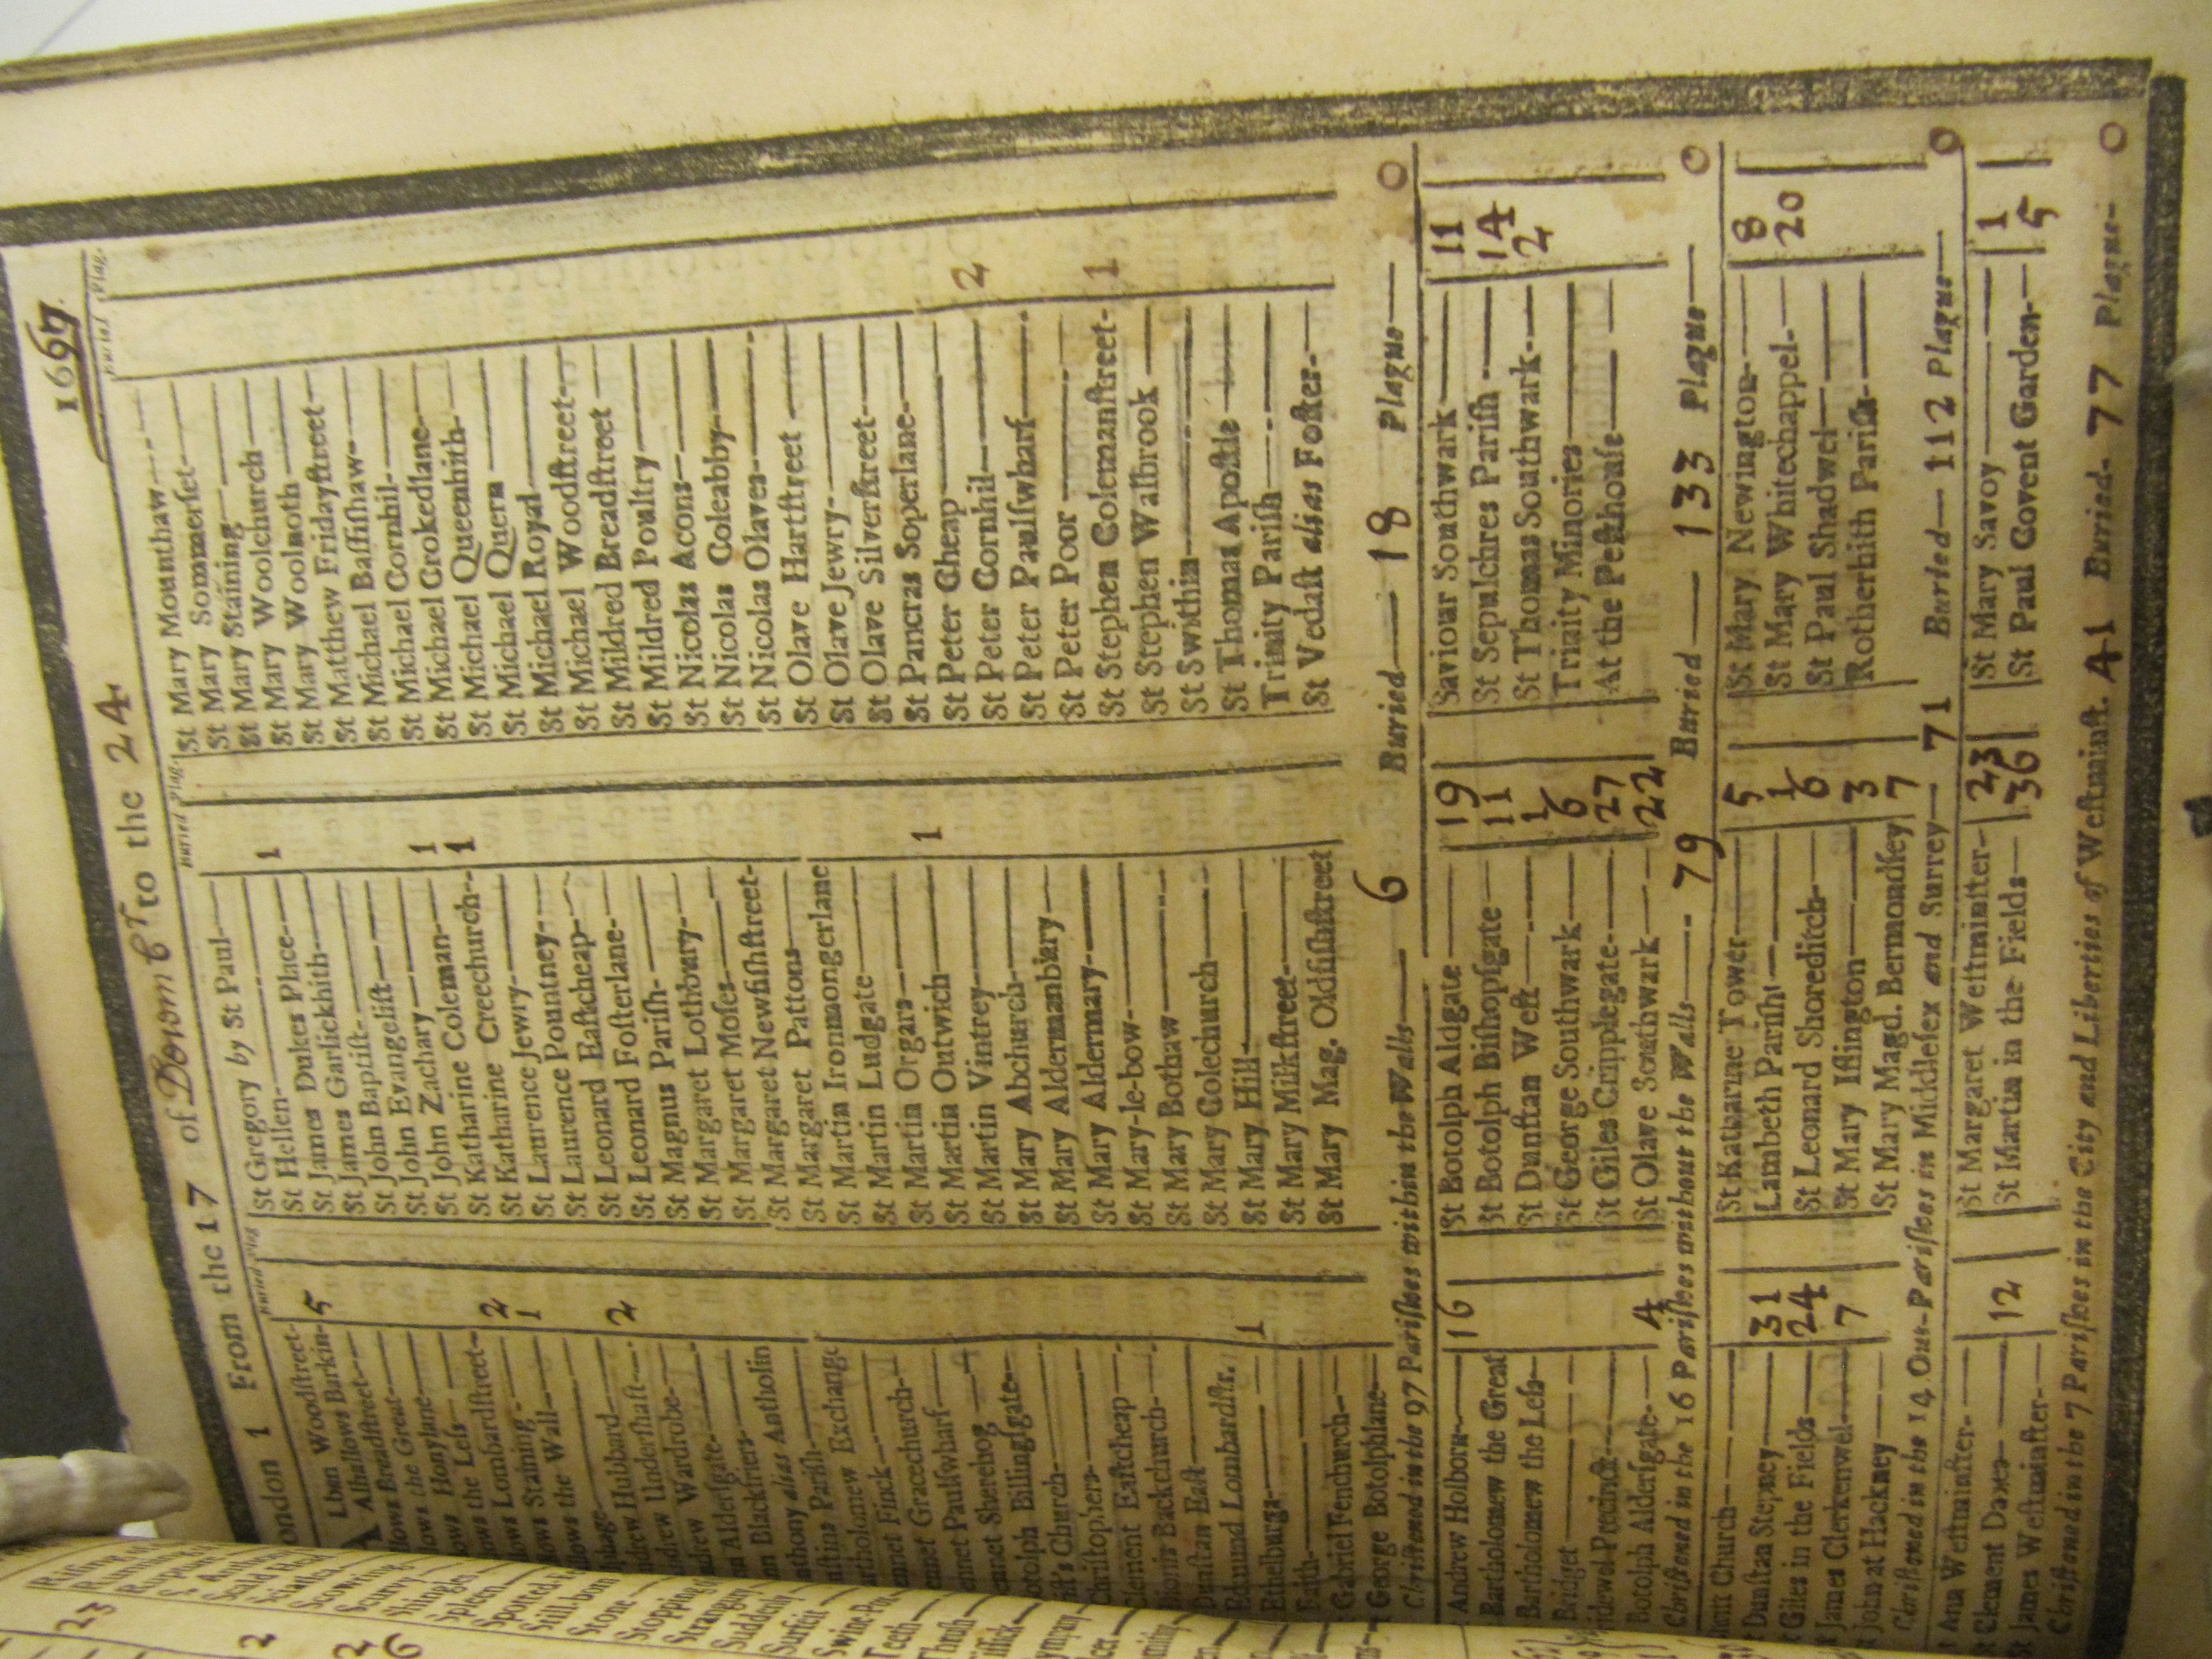 ondon 1 From the 17 of Decemb<sup>r</sup> to the 24 1667
Buried Plag. Buried Plag. Burial Plag.
Lban Woodstreet
A Alhallows Barkin 5
lows Breadstreet
lows the Great
lows Honylane
lows the Less
lows Lombardstreet 2
ows Staining 1
ows the Wall
phage
drew Hubbard 2
drew Undershaft
drew Wardrobe
n Aldersgate
nn Blackfriers
nthony alias Antholin
ustins Parish
artholomew Exchange
nnet Finck
ennet Gracechurch
ennet Paulswharf
ennet Sherehog
otolph Billingsgate
st's Church
Christophers
Clement Eastcheap
Dionis Backchurch
Dunstan East
Edmund Lombardstr.
Ethelburga 1
Faith
Gabriel Fenchurch
George Botolphlane
St Gregory by St Paul
St Hellen
St James Dukes Place 1
St James Garlickhith
St John Baptist
St John Evangelist
St John Zachary
St Katharine Coleman 1
St Katharine Creechurch 1
St Laurence Jewry
St Laurence Pountney
St Leonard Eastcheap
St Leonard Fosterlane
St Magnus Parish
St Margaret Lothbury
St Margaret Moses
St Margaret Newfishstreet
St Margaret Pattons
St Martin Ironmongerlane
St Martin Ludgate
St Martin Orgars
St Martin Outwich 1
St Martin Vintrey
St Mary Abchurch
St Mary Aldermanbury
St Mary Aldermary
St Mary-le-bow
St Mary Bothaw
St Mary Colechurch
St Mary Hill
St Mary Milkstreet
St Mary Mag. Oldfishstreet
St Mary Mounthaw
St Mary Sommerset
St Mary Staining
St Mary Woolchurch
St Mary Woolnoth
St Matthew Fridaystreet
St Michael Bassishaw
St Michael Cornhil
St Michael Crokedlane
St Michael Queenhith
St Michael Quern
St Michael Royal
St Michael Woodstreet
St Mildred Breadstreet
St Mildred Poultry
St Nicolas Acons
St Nicolas Coleabby
St Nicolas Olaves
St Olave Hartstreet
St Olave Jewry
St Olave Silverstreet
St Pancras Soperlane
St Peter Cheap
St Peter Cornhil 2
St Peter Paulswharf
St Peter Poor
St Stephen Colemanstreet 1
St Stephen Walbrook
St Swithin
St Thomas Apostle
Trinity Parish
St Vedast alias Foster
Christned in the 97 Parishes within the Walls 6 Buried 18 Plague 0
Andrew Holborn 16
Bartholomew the Great
Bartholomew the Less
Bridget
idewel Precinct
Botolph Aldersgate 4
St Botolph Aldgate 19
St Botolph Bishopsgate 11
St Dunstan West 1
St George Southwark 6
St Giles Cripplegate 27
St Olave Southwark 22
Saviour Southwark 11
St Sepulchres Parish 14
St Thomas Southwark 2
Trinity Minories
At the Pesthouse
Christned in the 16 Parishes without the Walls 79 Buried 133 Plague 0
Church
Dunstan Stepney 31
Giles in the Fields 24
James Clerkenwel 7
John at Hackney
St Katharine Tower 5
Lambeth Parish 1
St Leonard Shoreditch 6
St Mary Islington 3
St Mary Magd. Bermondsey 7
St Mary Newington 8
St Mary Whitechappel 20
St Paul Shadwel
Rotherhith Parish
Christned in the 14 Out-Parishes in Middlesex and Surrey 71 Buried 112 Plague 0
Ann Westminster
Clement Danes 12
James Westminster
St Margaret Westminster 23
St Martin in the Fields 36
St Mary Savoy 1
St Paul Covent Garden 5
Christned in the 7 Parishes in the City and Liberties of Westminst. 41 Buried 77 Plague 0
23
2
2
6
Rising
Scald Head
Sciatica
Scowring
Scurvy
Shingles
Spleen
Spotted
Still-born
Stone
Stopping
Strangury
Suddenly
Surfeit
Swine Po
Teeth
Thrush
Tissick